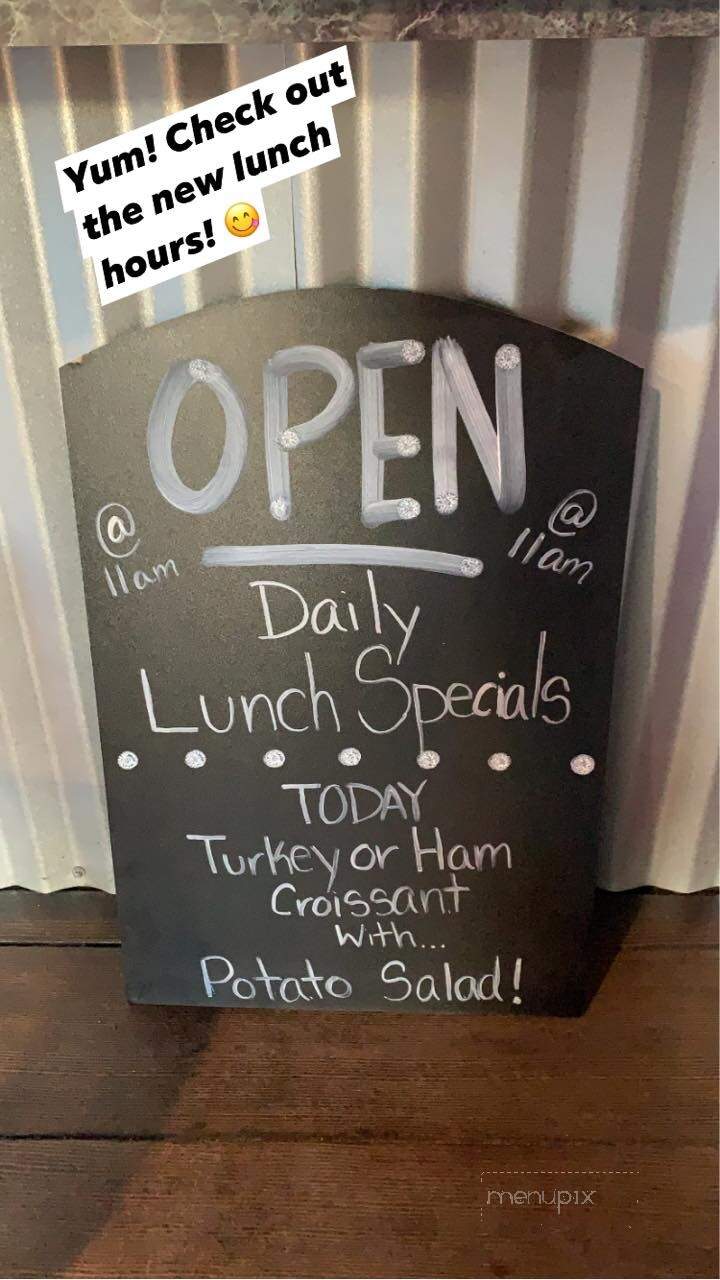 Yum! Check out
the new lunch
hours! 😋
OPEN
@
11am
@
11am
Daily
Lunch Specials
TODAY
Turkey or Ham
Croissant
With...
Potato Salad!
menupix